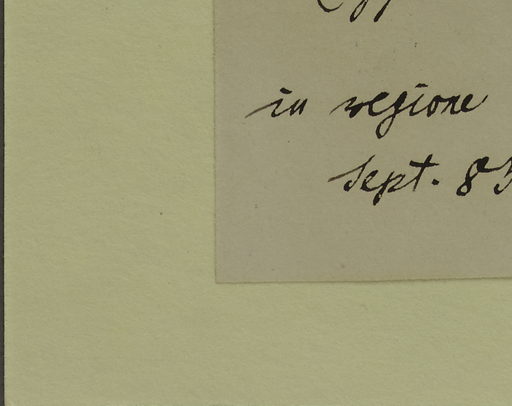 in regione
Sept. 85